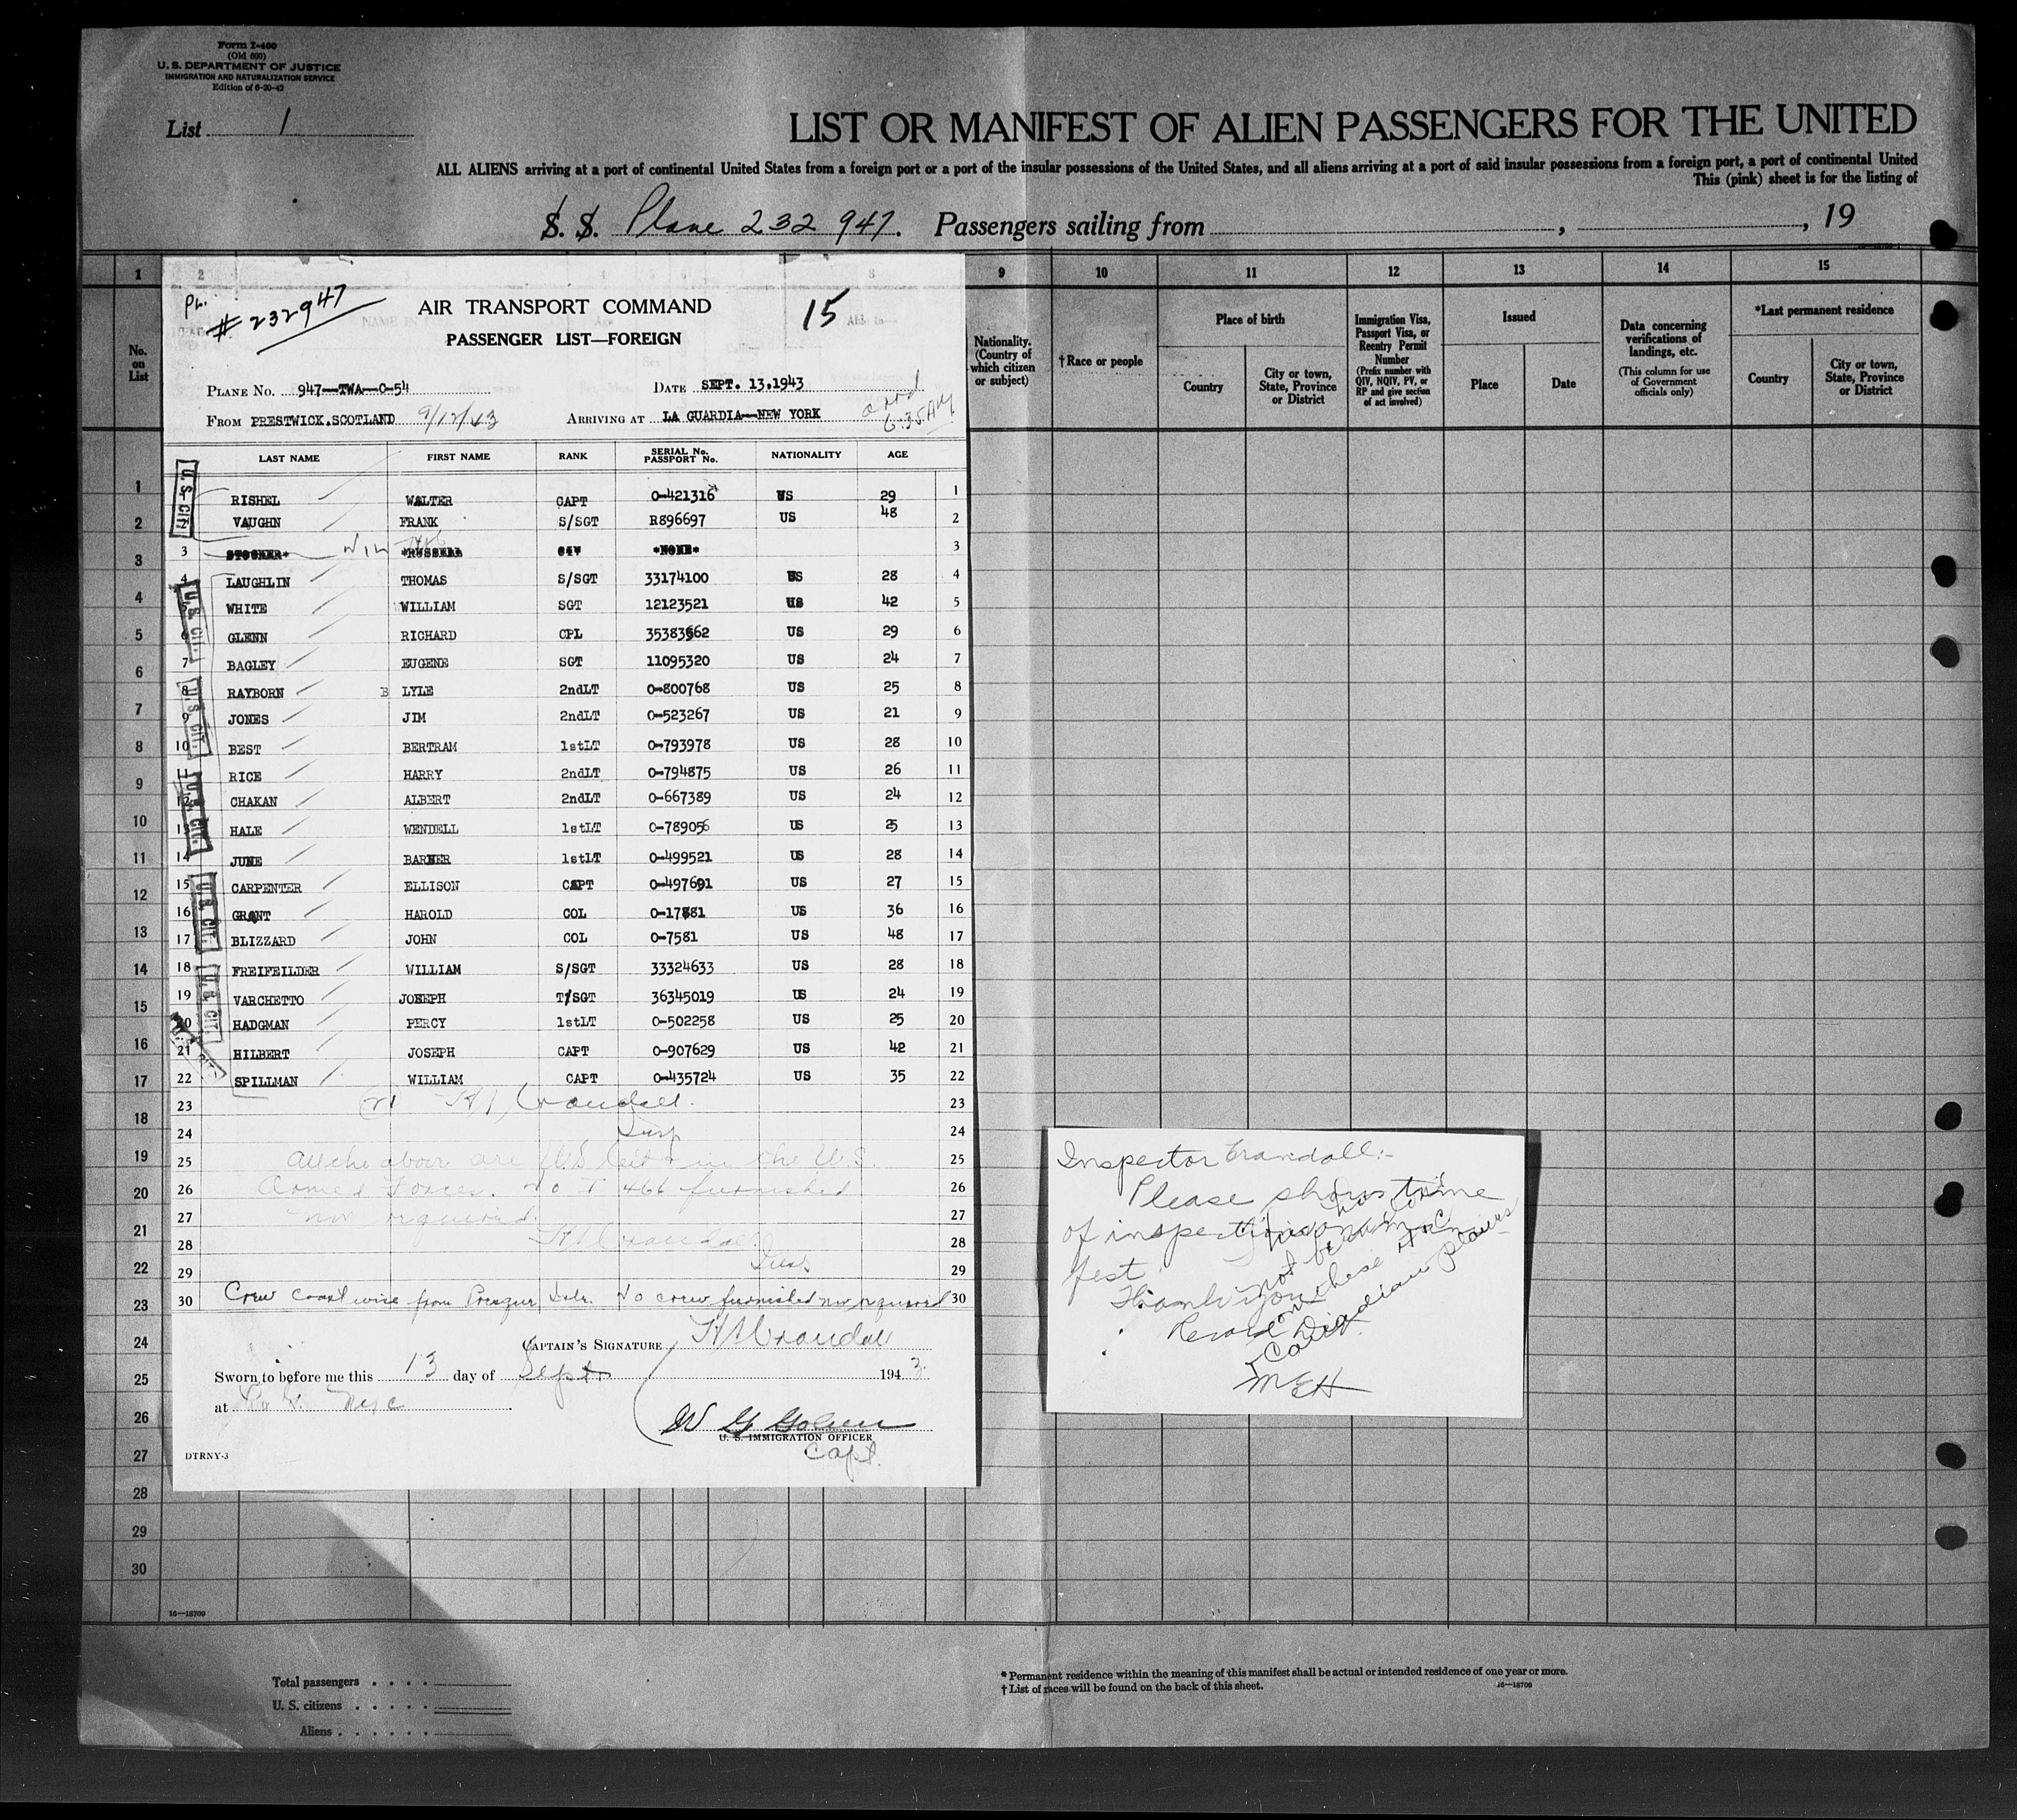 Form I-400
(Old 500)
U. S. DEPARTMENT OF JUSTICE
IMMIGRATION AND NATURALIZATION SERVICE
Edition of 6-20-42
List 1
LIST OR MANIFEST OF ALIEN PASSENGERS FOR THE UNITED
ALL ALIENS arriving at a port of continental United States from a foreign port or a port of the insular possessions of the United States, and all aliens arriving at a port of said insular possessions from a foreign port, a port of continental United
This (pink) sheet is for the listing of
S. S. Plane 232 947. Passengers sailing from , , 19
1 2 3 4 5 6 8 9 10 11 12 13 14 15
No. on List
Nationality. (Country of which citizen or subject)
†Race or people
Place of birth
Country
City or town, State, Province or District
Immigration Visa, Passport Visa, or Reentry Permit Number
(Prefix number with QIV, NQIV, PV, or RP and give section of act involved)
Issued
Place
Date
Data concerning verifications of landings, etc.
(This column for use of Government officials only)
*Last permanent residence
Country
City or town, State, Province or District
Pl.
# 232947
AIR TRANSPORT COMMAND
15
PASSENGER LIST—FOREIGN
PLANE NO. 947--TWA--C-54 DATE SEPT. 13.1943
FROM PRESTWICK.SCOTLAND 9/12/43 ARRIVING AT LA GUARDIA--NEW YORK
6:35 AM
LAST NAME FIRST NAME RANK SERIAL No. PASSPORT No. NATIONALITY AGE
1 RISHEL WALTER CAPT 0-421316 US 29 1
2 VAUGHN FRANK S/SGT R896697 US 48 2
3 STOCKER* *RUSSELL CIV *NONE* 3
4 LAUGHLIN THOMAS S/SGT 33174100 US 28 4
5 WHITE WILLIAM SGT 12123521 US 42 5
6 GLENN RICHARD CPL 35383662 US 29 6
7 BAGLEY EUGENE SGT 11095320 US 24 7
8 RAYBORN B LYLE 2ndLT 0-800768 US 25 8
9 JONES JIM 2ndLT 0-523267 US 21 9
10 BEST BERTRAM 1stLT 0-793978 US 28 10
11 RICE HARRY 2ndLT 0-794875 US 26 11
12 CHAKAN ALBERT 2ndLT 0-667389 US 24 12
13 HALE WENDELL 1stLT 0-789056 US 25 13
14 JUNE BARNER 1stLT 0-499521 US 28 14
15 CARPENTER ELLISON CAPT 0-497691 US 27 15
16 GRANT HAROLD COL 0-17881 US 36 16
17 BLIZZARD JOHN COL 0-7581 US 48 17
18 FREIFEILDER WILLIAM S/SGT 33324633 US 28 18
19 VARCHETTO JOSEPH T/SGT 36345019 US 24 19
20 HADGMAN PERCY 1stLT 0-502258 US 25 20
21 HILBERT JOSEPH CAPT 0-907629 US 42 21
22 SPILLMAN WILLIAM CAPT 0-435724 US 35 22
U.S-CIT.
U.S. CIT.
U.S CIT.
U.S. CIT.
U.S CIT.
U.S CIT.
23 21 H Crandall. 23
24 Insp 24
25 All the above are US Cit in the U.S. 25
26 Armed Forces. No I 466 furnished 26
27 nor required. 27
28 H Crandall 28
29 Insp 29
30 Crew Coastwise from Presque Isle. No crew furnished nor required 30
CAPTAIN'S SIGNATURE H Crandall
Sworn to before me this 13 day of Sept 1943
at NYC
U. S. IMMIGRATION OFFICER
Capt.
DTRNY-3
Inspector Crandall:-
Please show time
of inspection on mani
fest.
Thank you
Record Div.
not
on these
Canadian planes
MEH
1
2
3
4
5
6
7
8
9
10
11
12
13
14
15
16
17
18
19
20
21
22
23
24
25
26
27
28
29
30
16—18709
Total passengers
U. S. citizens
Aliens
* Permanent residence within the meaning of this manifest shall be actual or intended residence of one year or more.
† List of races will be found on the back of this sheet.
16—18709